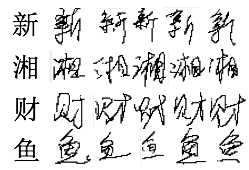 新 新 新 新 新 新
湘 湘 湘 湘 湘 湘
财 财 财 财 财 财
鱼 鱼 鱼 鱼 鱼 鱼